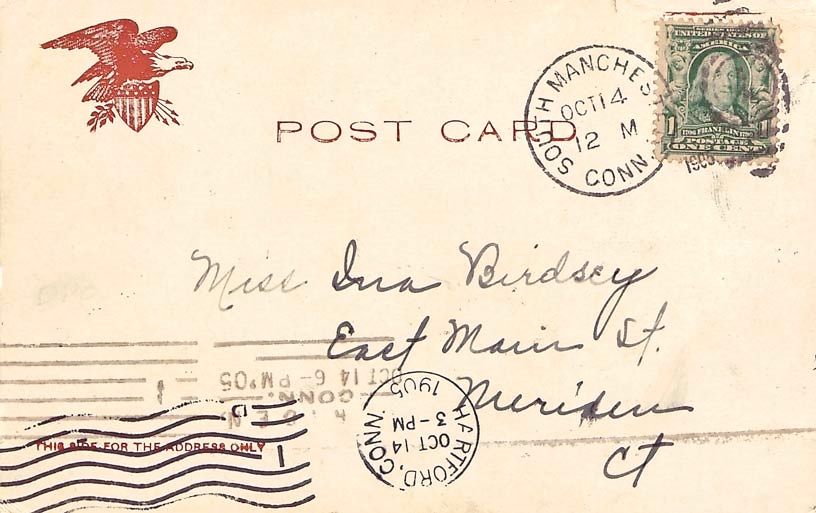 POST CARD
SOUTH MANCHES
OCT 14
12 M
CONN.
1905
SERIES 1902
UNITED STATES OF
AMERICA
1706 FRANKLIN 1790
1 POSTAGE 1
ONE CENT
Miss Ina Birdsey
East Main St.
Meriden
Ct
OCT 14 6-PM '05
CONN.
HARTFORD, CONN.
OCT 14
3-PM
1905
D
1
THIS SIDE FOR THE ADDRESS ONLY